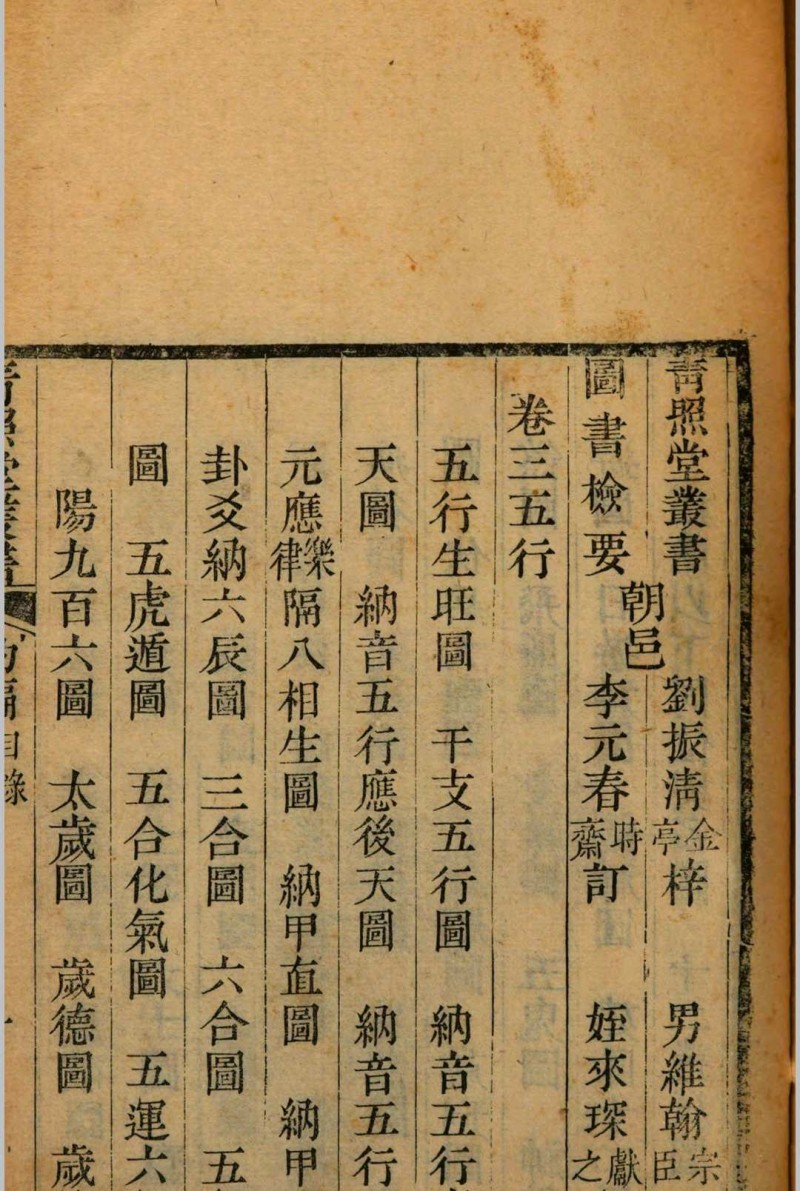 青照堂叢書
朝邑
劉振清金亭梓 男維翰宗臣
圖書檢要
李元春時齋訂 姪來琛獻之
卷三五行
五行生旺圖 干支五行圖 納音五行
天圖 納音五行應後天圖 納音五行
元應樂律隔八相生圖 納甲直圖 納甲
卦爻納六辰圖 三合圖 六合圖 五
圖 五虎遁圖 五合化氣圖 五運六
陽九百六圖 太歲圖 歲德圖 歲
目錄